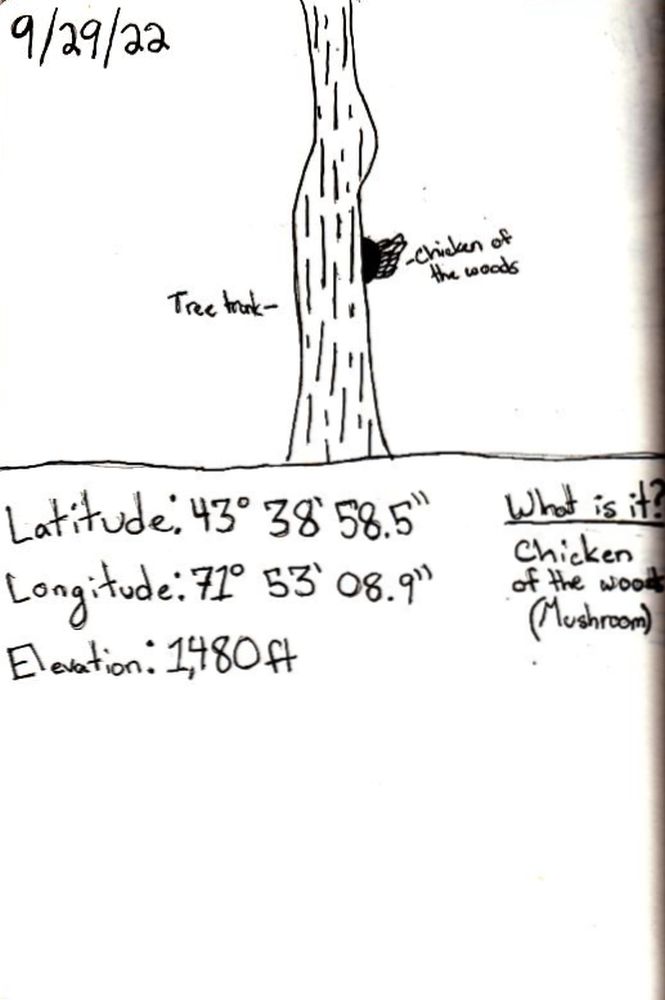 9/29/22
Chicken of
the woods
Tree trunk
Latitude: 43° 38' 58.5"
Longitude: 71° 53' 08.9"
Elevation: 1,480 ft
What is it?
Chicken
of the woods
(Mushroom)